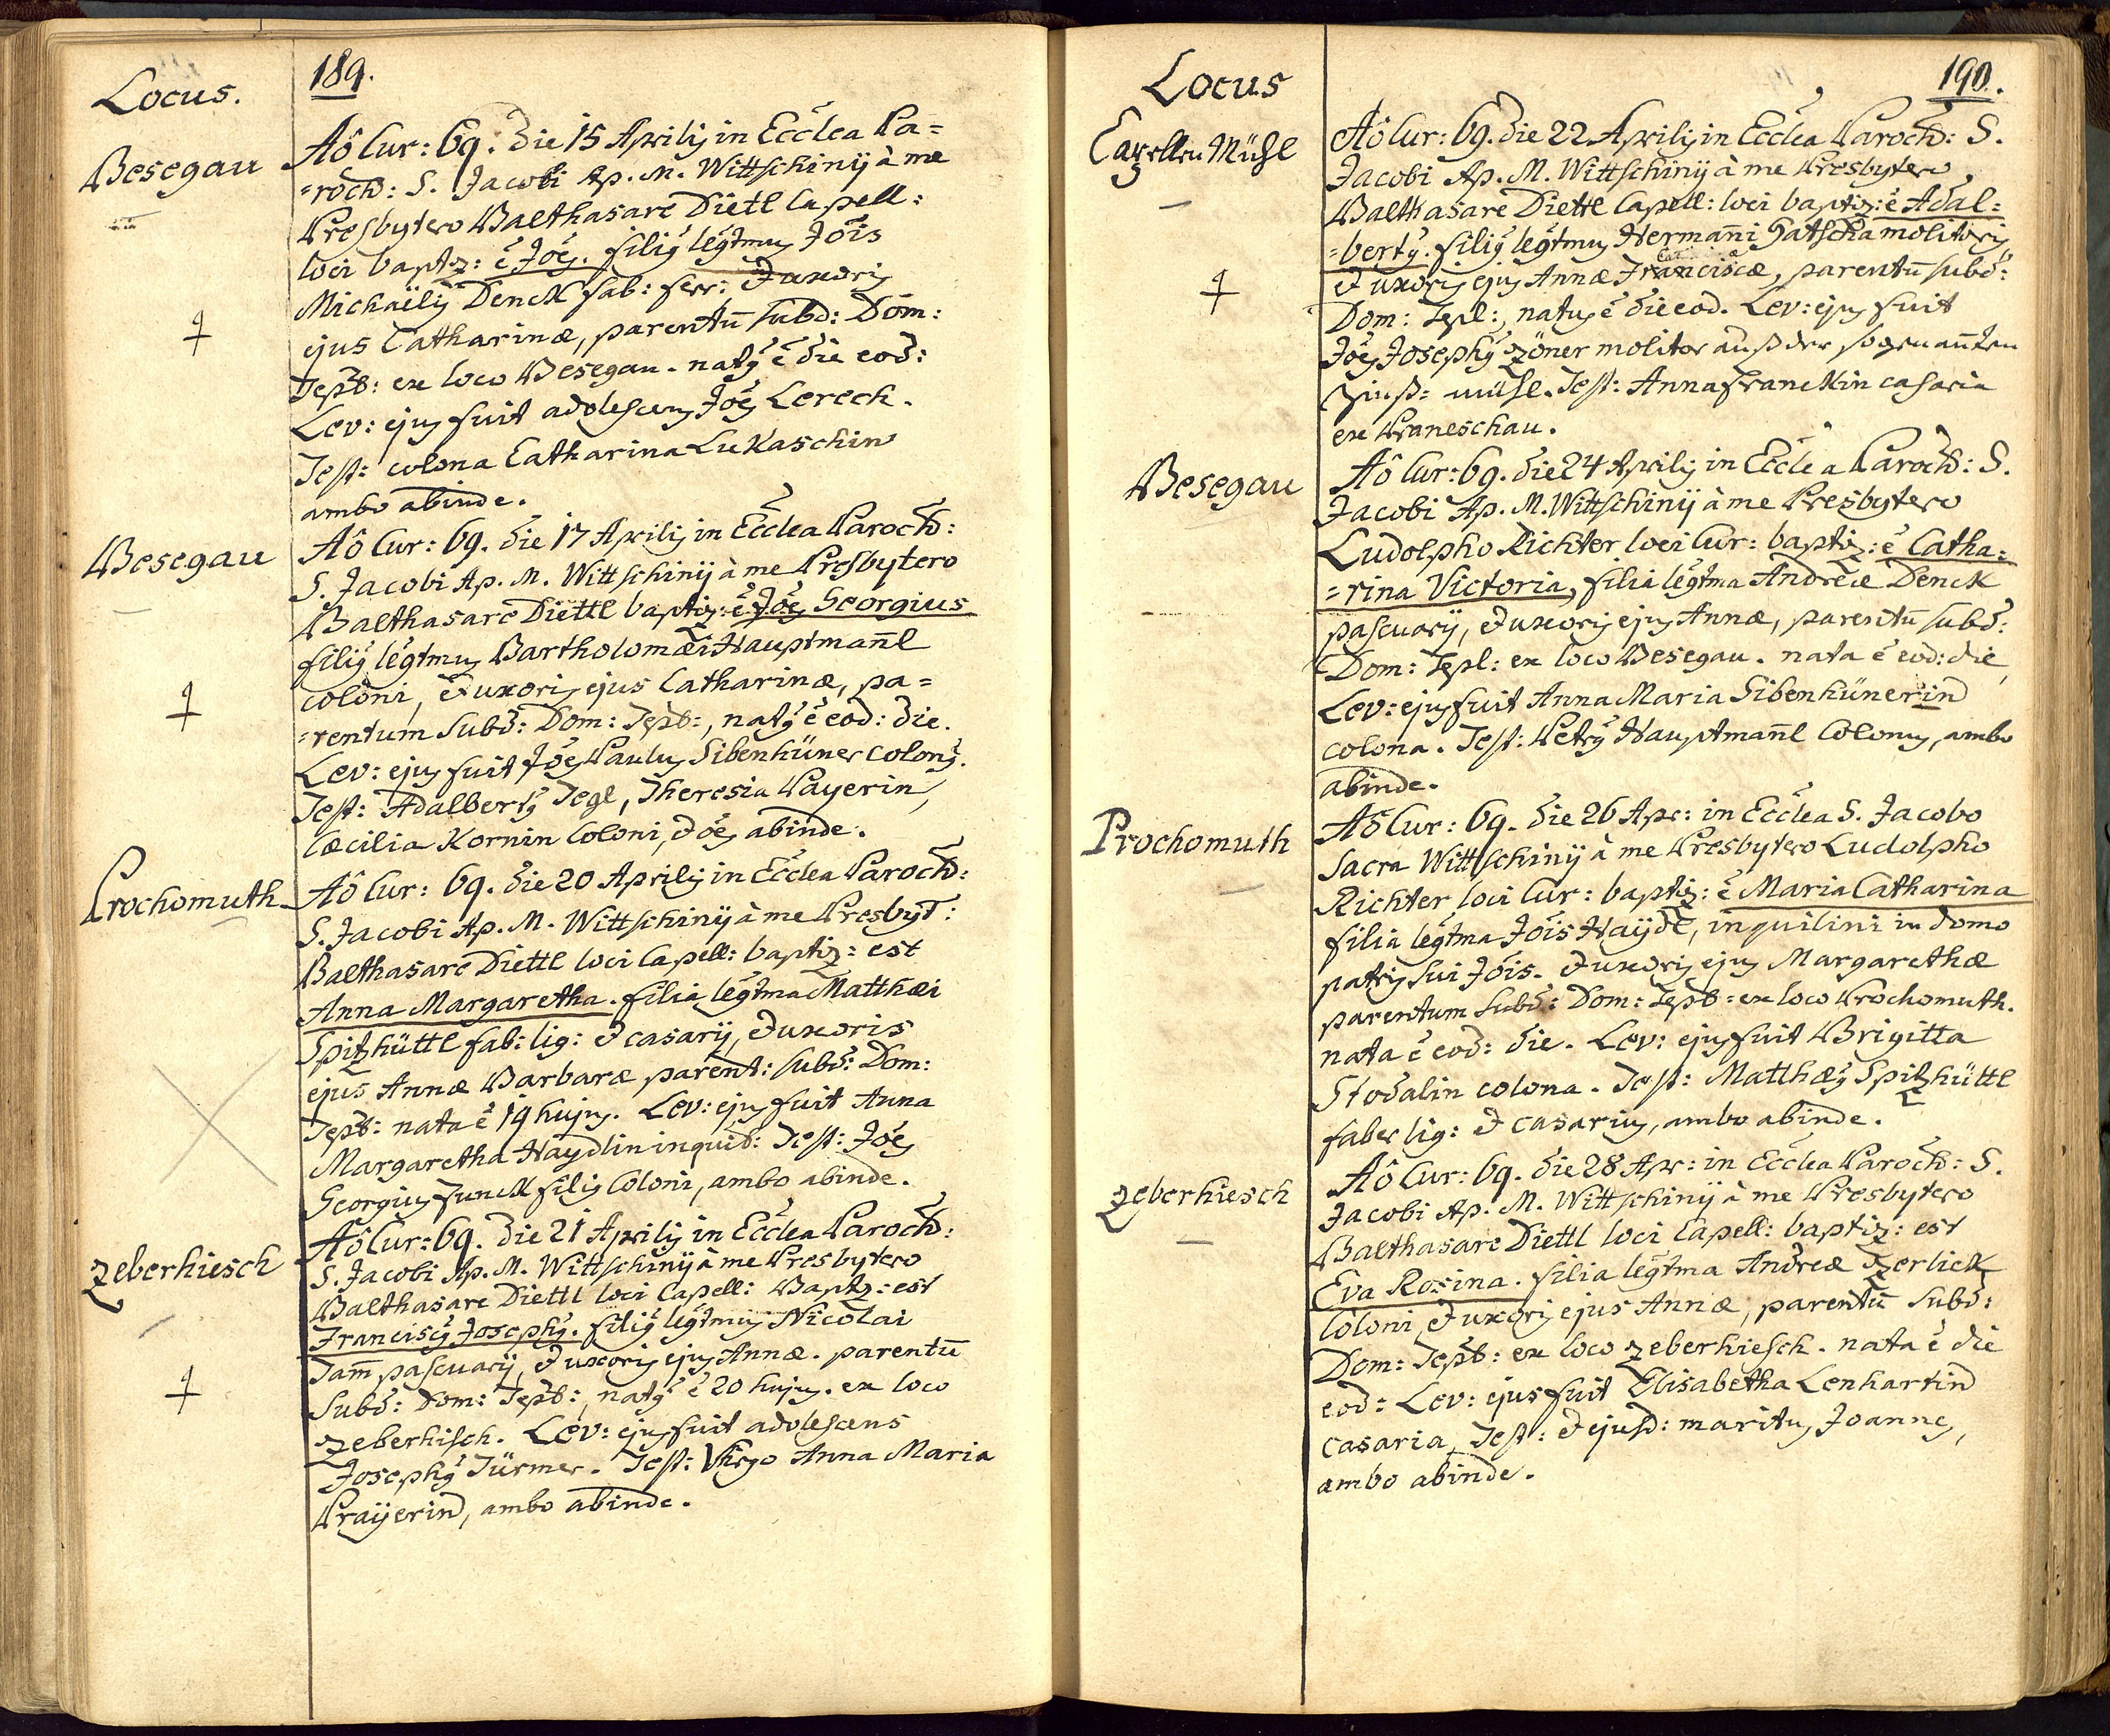 Locus.
189.
Besegau
Aô Cur: 69. die 15 Aprilis in Ecclea Pa=
=roch: S. Jacobi Ap. M. Wittschinÿ à me
Presbytero Balthasare Dietl Capell:
loci baptiz: ẽ Joẽs. filiꝰ legtmus Jois
Michaëlis Denck fab: ferr: & uxoris
ejus Catharinæ, parentũ subd: Dom:
Tepl: ex loco Besegau. natꝰ ẽ die eod:
Lev: ejus fuit adolescens Joẽs Lerech.
Test: colona Catharina Lukaschin
ambo abinde.
Besegau
Aô Cur: 69. die 17 Aprilis in Ecclea Paroch:
S. Jacobi Ap. M. Wittschinÿ à me Presbytero
Balthasare Diettl baptiz: ẽ Joẽs Georgius
filiꝰ legtmus Bartholomæi Hauptmañl
coloni, & uxoris ejus Catharinæ, pa=
=rentum subd: Dom: Tepl:, natꝰ ẽ eod: die.
Lev: ejus fuit Joẽs Paulus Sibenhüner colonꝰ.
Test: Adalbertꝰ Tegl, Theresia Payerin,
Cæcilia Kornin Coloni, & Joẽs abinde.
Prochomuth
Aô Cur: 69. die 20 Aprilis in Ecclea Paroch:
S. Jacobi Ap. M. Wittschinÿ à me Presbyt:
Balthasare Diettl loci Capell: baptiz: est
Anna Margaretha. filia legtma Matthæi
Spitzhüttl fab: lig: & casarÿ, & uxoris
ejus Annæ Barbaræ parent: subd: Dom:
Tepl: nata ẽ 19 hujus. Lev: ejus fuit Anna
Margaretha Haydlin inquil: Test: Joẽs
Georgius Funck filiꝰ Coloni, ambo abinde.
Zeberhiesch
Aô Cur: 69. die 21 Aprilis in Ecclea Paroch:
S. Jacobi Ap. M. Wittschinÿ à me Presbytero
Balthasare Diettl loci Capell: Baptz: est
Franciscꝰ Josephꝰ. filiꝰ legtmus Nicolai
Tam̃ pascuarÿ, & uxoris ejus Annæ. parentũ
Subd: Dom: Tepl:, natꝰ ẽ 20 hujus. ex loco
Zeberhisch. Lev: ejus fuit adolescens
Josephꝰ Türmer. Test: Virgo Anna Maria
Prayerin, ambo abinde.
Locus
190.
Capellen Mühl
Aô Cur: 69. die 22 Aprilis in Ecclea Paroch: S.
Jacobi Ap. M. Wittschinÿ à me Presbytero
Balthasare Diettl Capell: loci baptiz: ẽ Adal=
=bertꝰ. filiꝰ legtmus Hermañi Gatscha molitoris
& uxoris ejus Annæ Franciscæ, parentũ subd:
Dom: Tepl:, natus ẽ die eod. Lev: ejus fuit
Joẽs Josephꝰ Zöner molitor auß der sogenañten
mühl. Test: Anna Franckin casaria
ex Praneschau.
Besegau
Aô Cur: 69. die 24 Aprilis in Ecclea Paroch: S.
Jacobi Ap. M. Wittschinÿ à me Presbytero
Ludolpho Richter loci Cur: baptiz: ẽ Catha=
=rina Victoria, filia legtma Andreæ Denck
pascuarÿ, & uxoris ejus Annæ, parentũ subd:
Dom: Tepl: ex loco Besegau. nata ẽ eod: die,
Lev: ejus fuit Anna Maria Sibenhünerin
colona. Test: Petrꝰ Hauptmañl Colonus, ambo
abinde.
Prochomuth
Aô Cur: 69. die 26 Apr: in Ecclea S. Jacobo
Sacra Wittschinÿ à me Presbytero Ludolpho
Richter loci Cur: baptiz: ẽ Maria Catharina
filia legtma Jois Haÿdl, inquilini in domo
patris sui Jois. & uxoris ejus Margarethæ
parentum subd: Dom: Tepl: ex loco Prochomuth.
nata ẽ eod: die. Lev: ejus fuit Brigitta
Stodalin colona. Test: Matthæꝰ Spitzhüttl
faber lig: & casarius, ambo abinde.
Zeberhiesch
Aô Cur: 69. die 28 Apr: in Ecclea Paroch: S.
Jacobi Ap. M. Wittschinÿ à me Presbytero
Balthasare Diettl loci Capell: baptiz: est
Eva Rosina. filia legtma Andreæ Zerlick
Coloni, & uxoris ejus Annæ, parentũ subd:
Dom: Tepl: ex loco Zeberhiesch. nata ẽ die
eod: Lev: ejus fuit Elisabetha Lenhartin
casaria, Test: & ejusd: maritus Joannes,
ambo abinde.